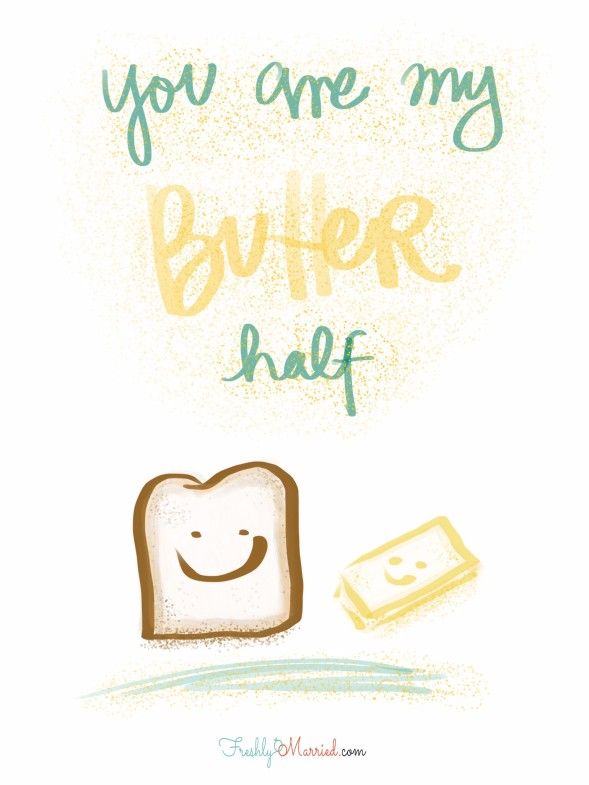 you are my
Butter
half
FreshlyMarried.com